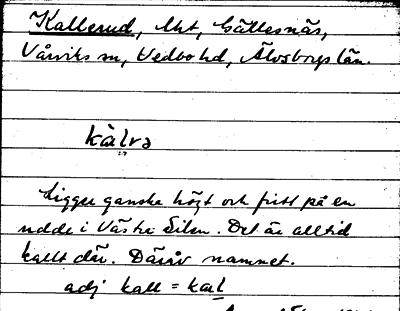 Kallerud, lht, Gällesnäs,
Vårviks sn, Vedbo hd, Älvsborgs län.
kàlrə
Ligger ganske högt och fritt på en
udde i Västre Silen. Det är alltid
kallt där. Därav namnet.
adj kall = kal